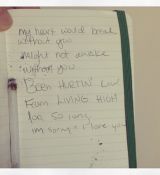 my heart would break
without you
Might not awake
without you
BEEN HURTIN' LOW
FROM LIVING HIGH
for so long
im sorry & i love you